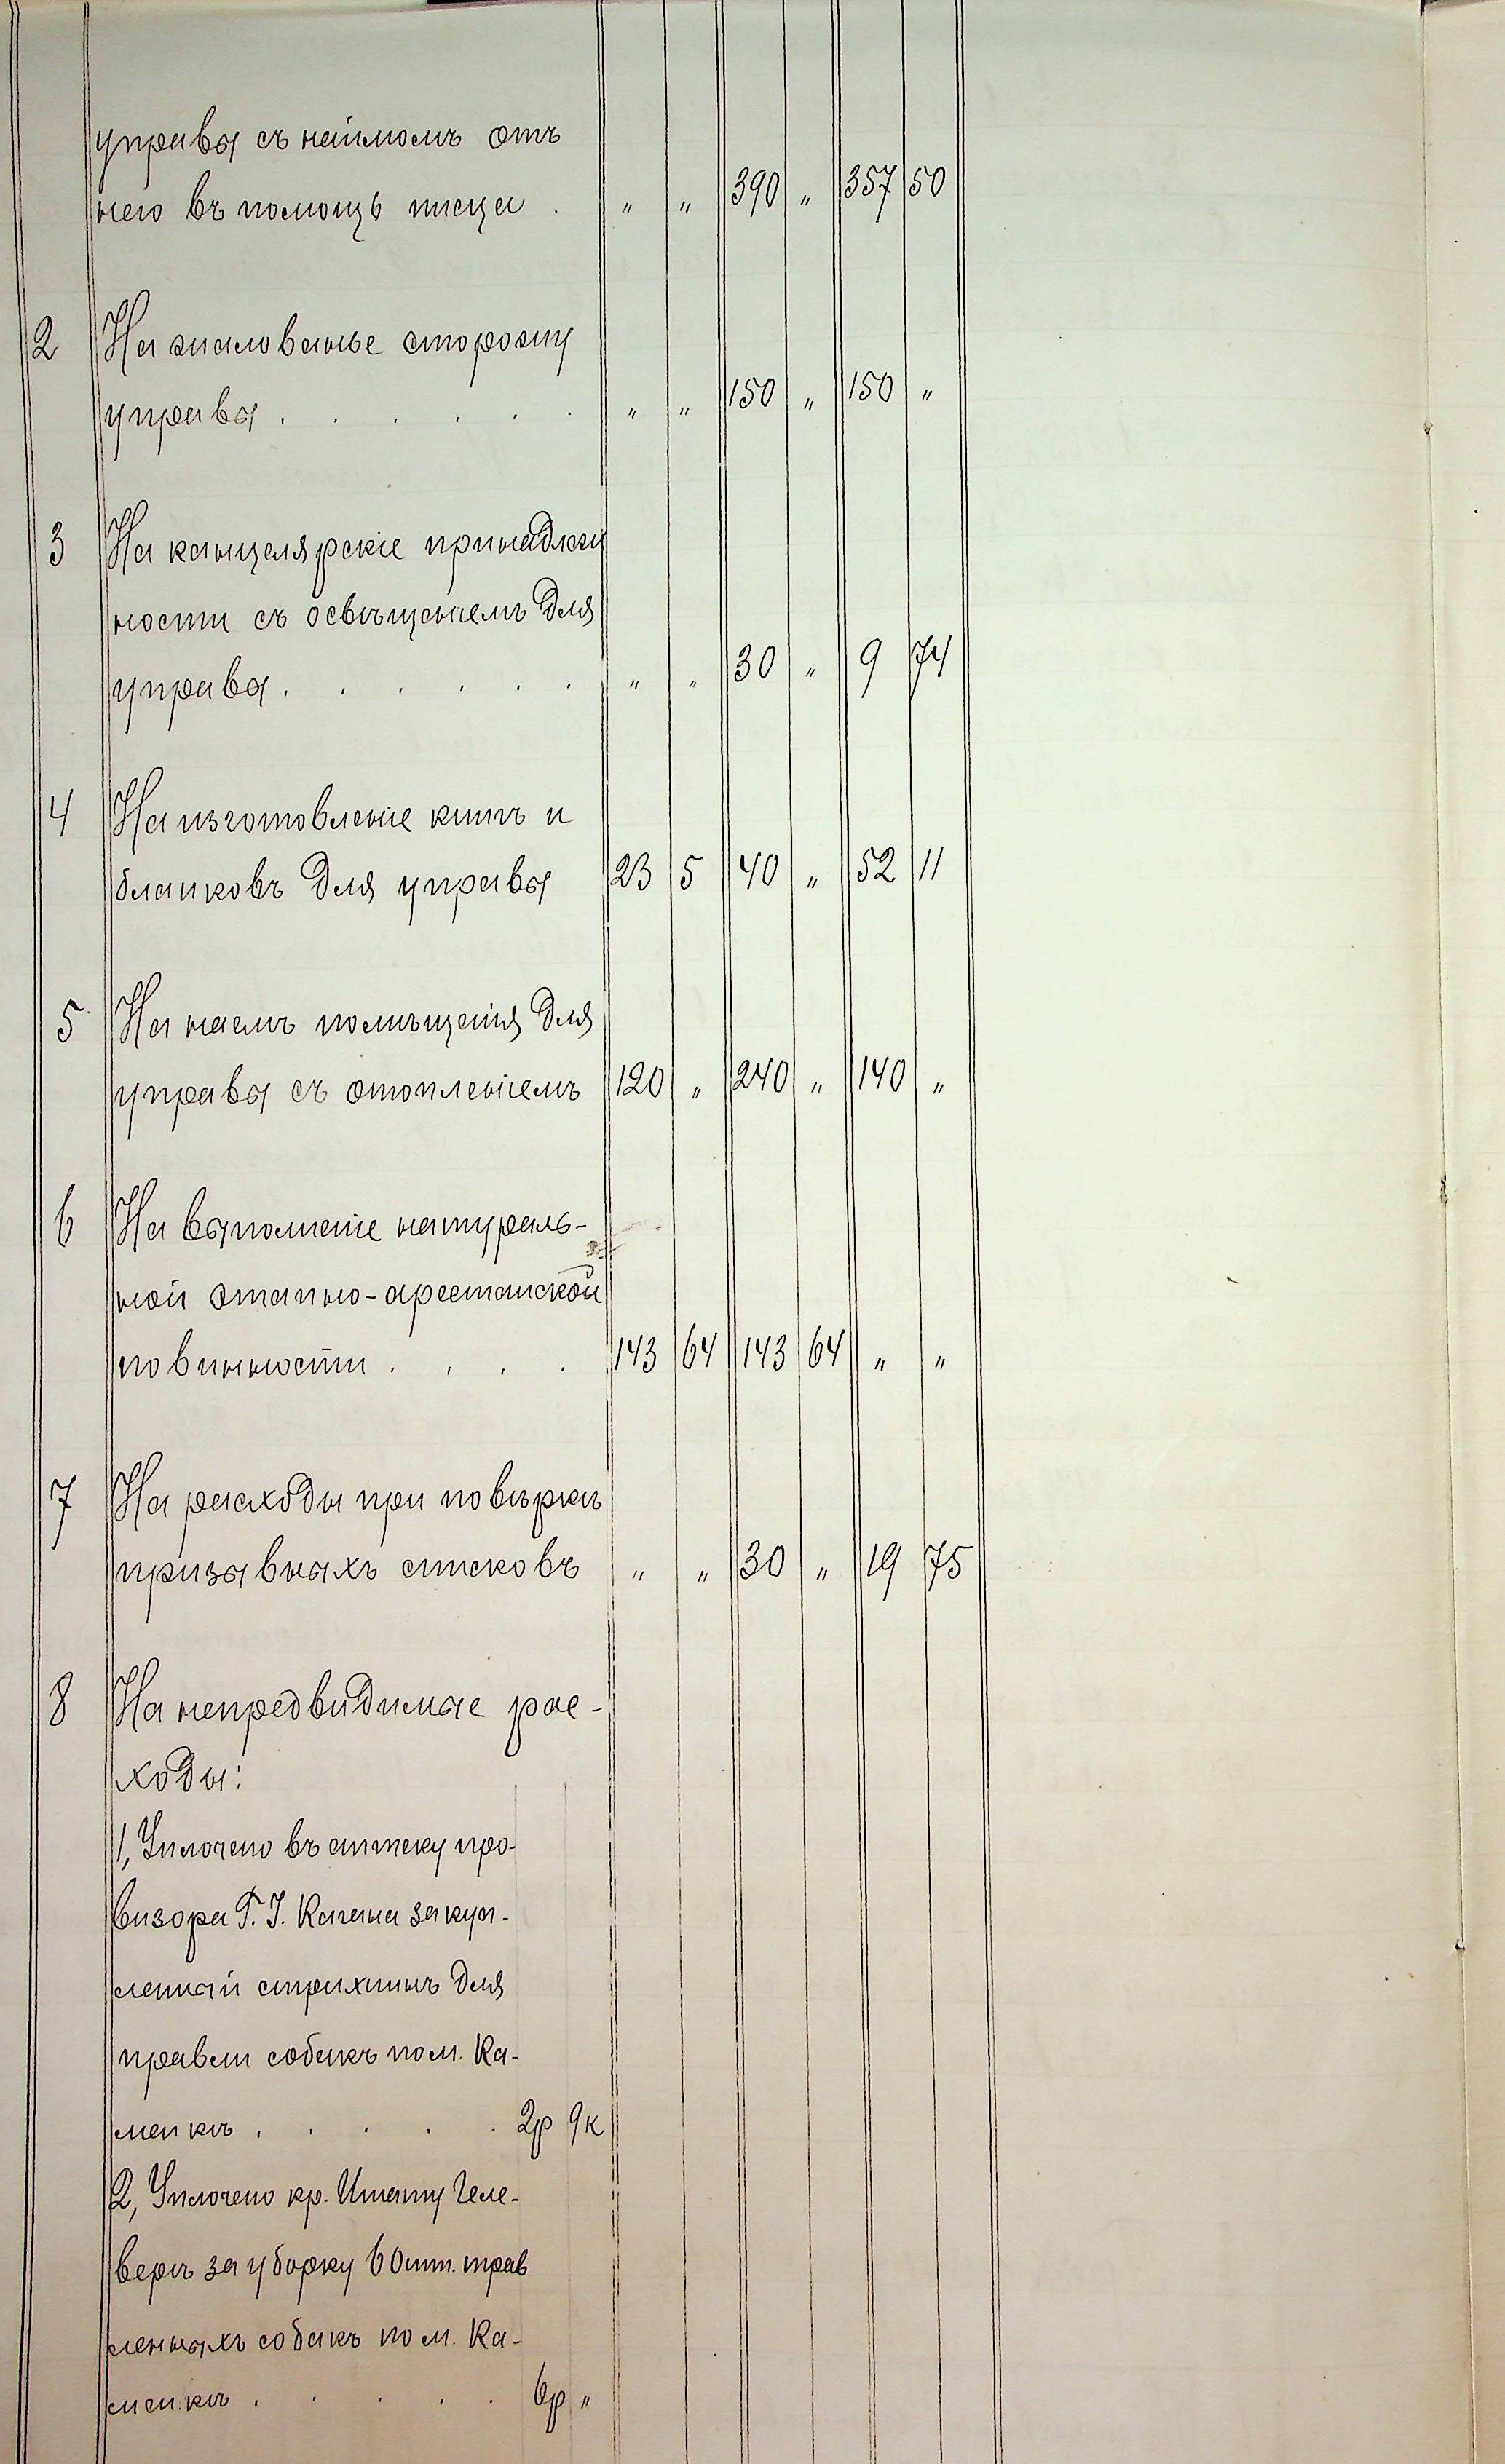 управы съ наймомъ отъ
него въ помощь писца . " " 390 " 357 50
2 На жалованье сторожу
управы . . . . . . " " 150 " 150 "
3 На канцелярскіе принадлеж
ности съ освѣщеніемъ для
управы . . . . . . " " 30 " 9 74
4 На изготовленіе книгъ и
бланковъ для управы 23 5 40 " 52 11
5 На наемъ помѣщенія для
управы съ отопленіемъ 120 " 240 " 140 "
6 На выполненіе натураль-
ной этапно-арестанской
повинности . . . . 143 64 143 64 " "
7 На расходы при повѣркѣ
призывныхъ списковъ " " 30 " 19 75
8 На непредвидимые рас-
ходы:
1, Уплочено въ аптеку про-
визора Г. І. Кагана за куп-
ленный стрихнинъ для
травли собакъ по м. Ка-
менкѣ . . . . . 2р 9к
2, Уплочено кр. Игнату Геле-
верѣ за уборку 60 шт. трав
ленныхъ собакъ по м. Ка-
менкѣ . . . . . 6р "